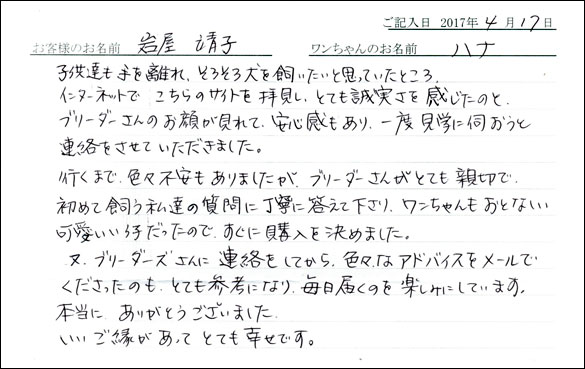 ご記入日 2017年4月17日
お客様のお名前 岩屋 靖子 ワンちゃんのお名前 ハナ
子供達も手を離れ、そろそろ犬を飼いたいと思っていたところ、
インターネットで こちらのサイトを拝見し、とても誠実さを感じたのと、
ブリーダーさんのお顔が見れて、安心感もあり、一度見学に伺おうと
連絡をさせていただきました。
行くまで、色々不安もありましたが、ブリーダーさんがとても親切で、
初めて飼う私達の質問に丁寧に答えて下さり、ワンちゃんもおとなしい
可愛いい仔だったので、すぐに購入を決めました。
又、ブリーダーズさんに連絡をしてから、色々なアドバイスをメールで
くださったのも、とても参考になり、毎日届くのを楽しみにしています。
本当に ありがとうございました。
いい ご縁があって とても幸せです。